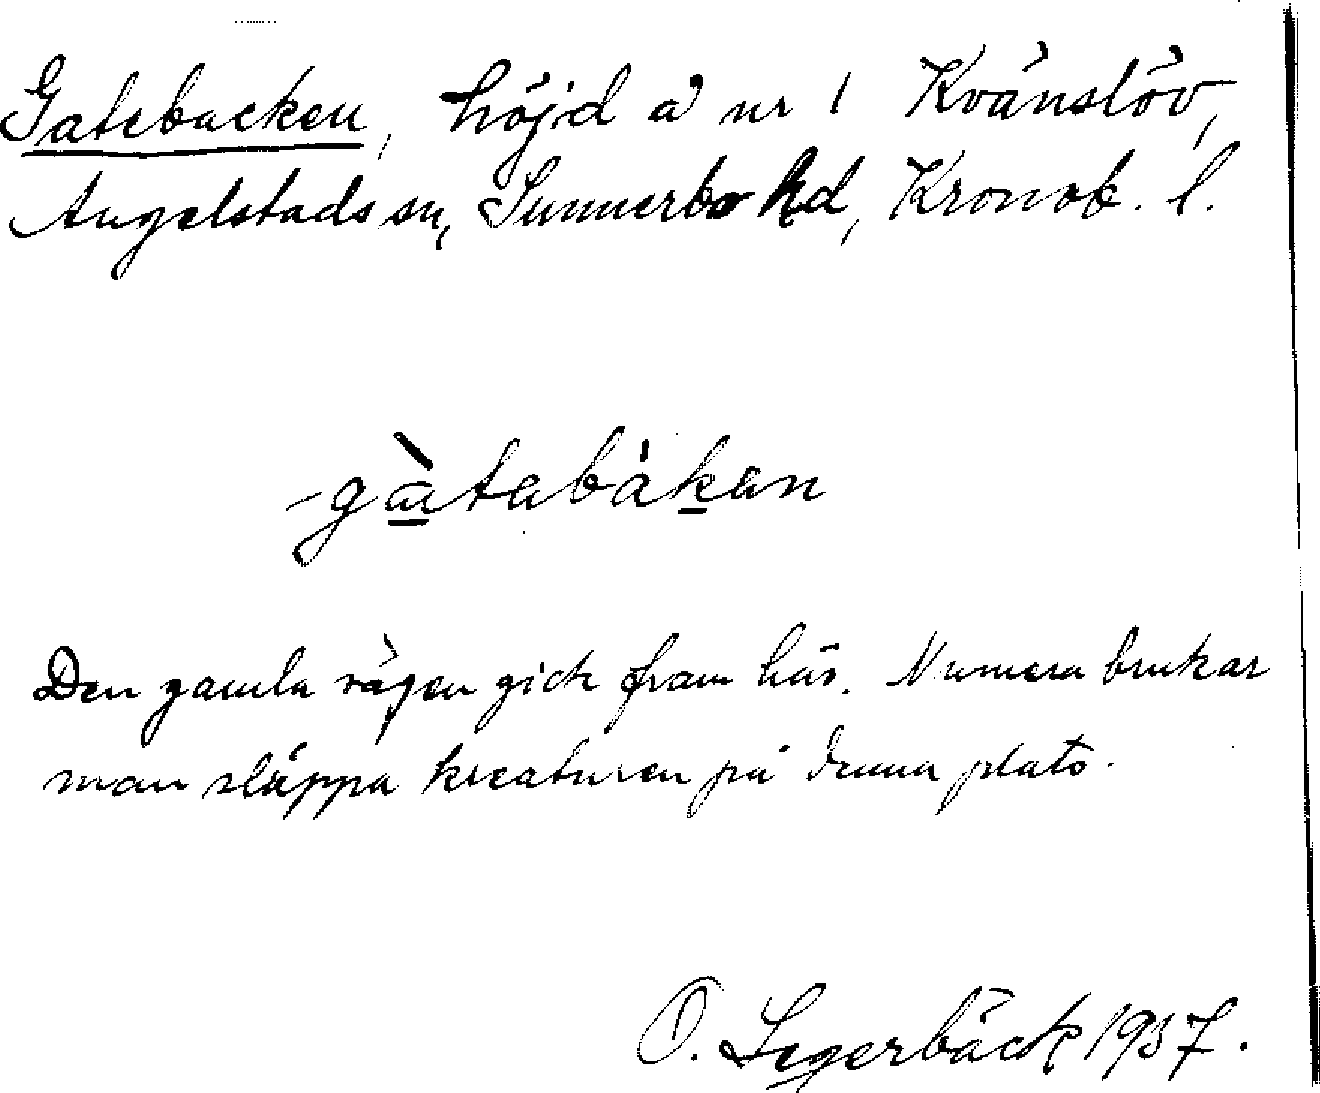 Gatebacken, höjd å nr 1 Kvänslöv,
Angelstads sn, Sunnerbo hd, Kronob. l.
gàtabákan
Den gamla vägen gick fram här. Numera brukar
man släppa kreaturen på denna plats.
O. Segerbäck 1937.